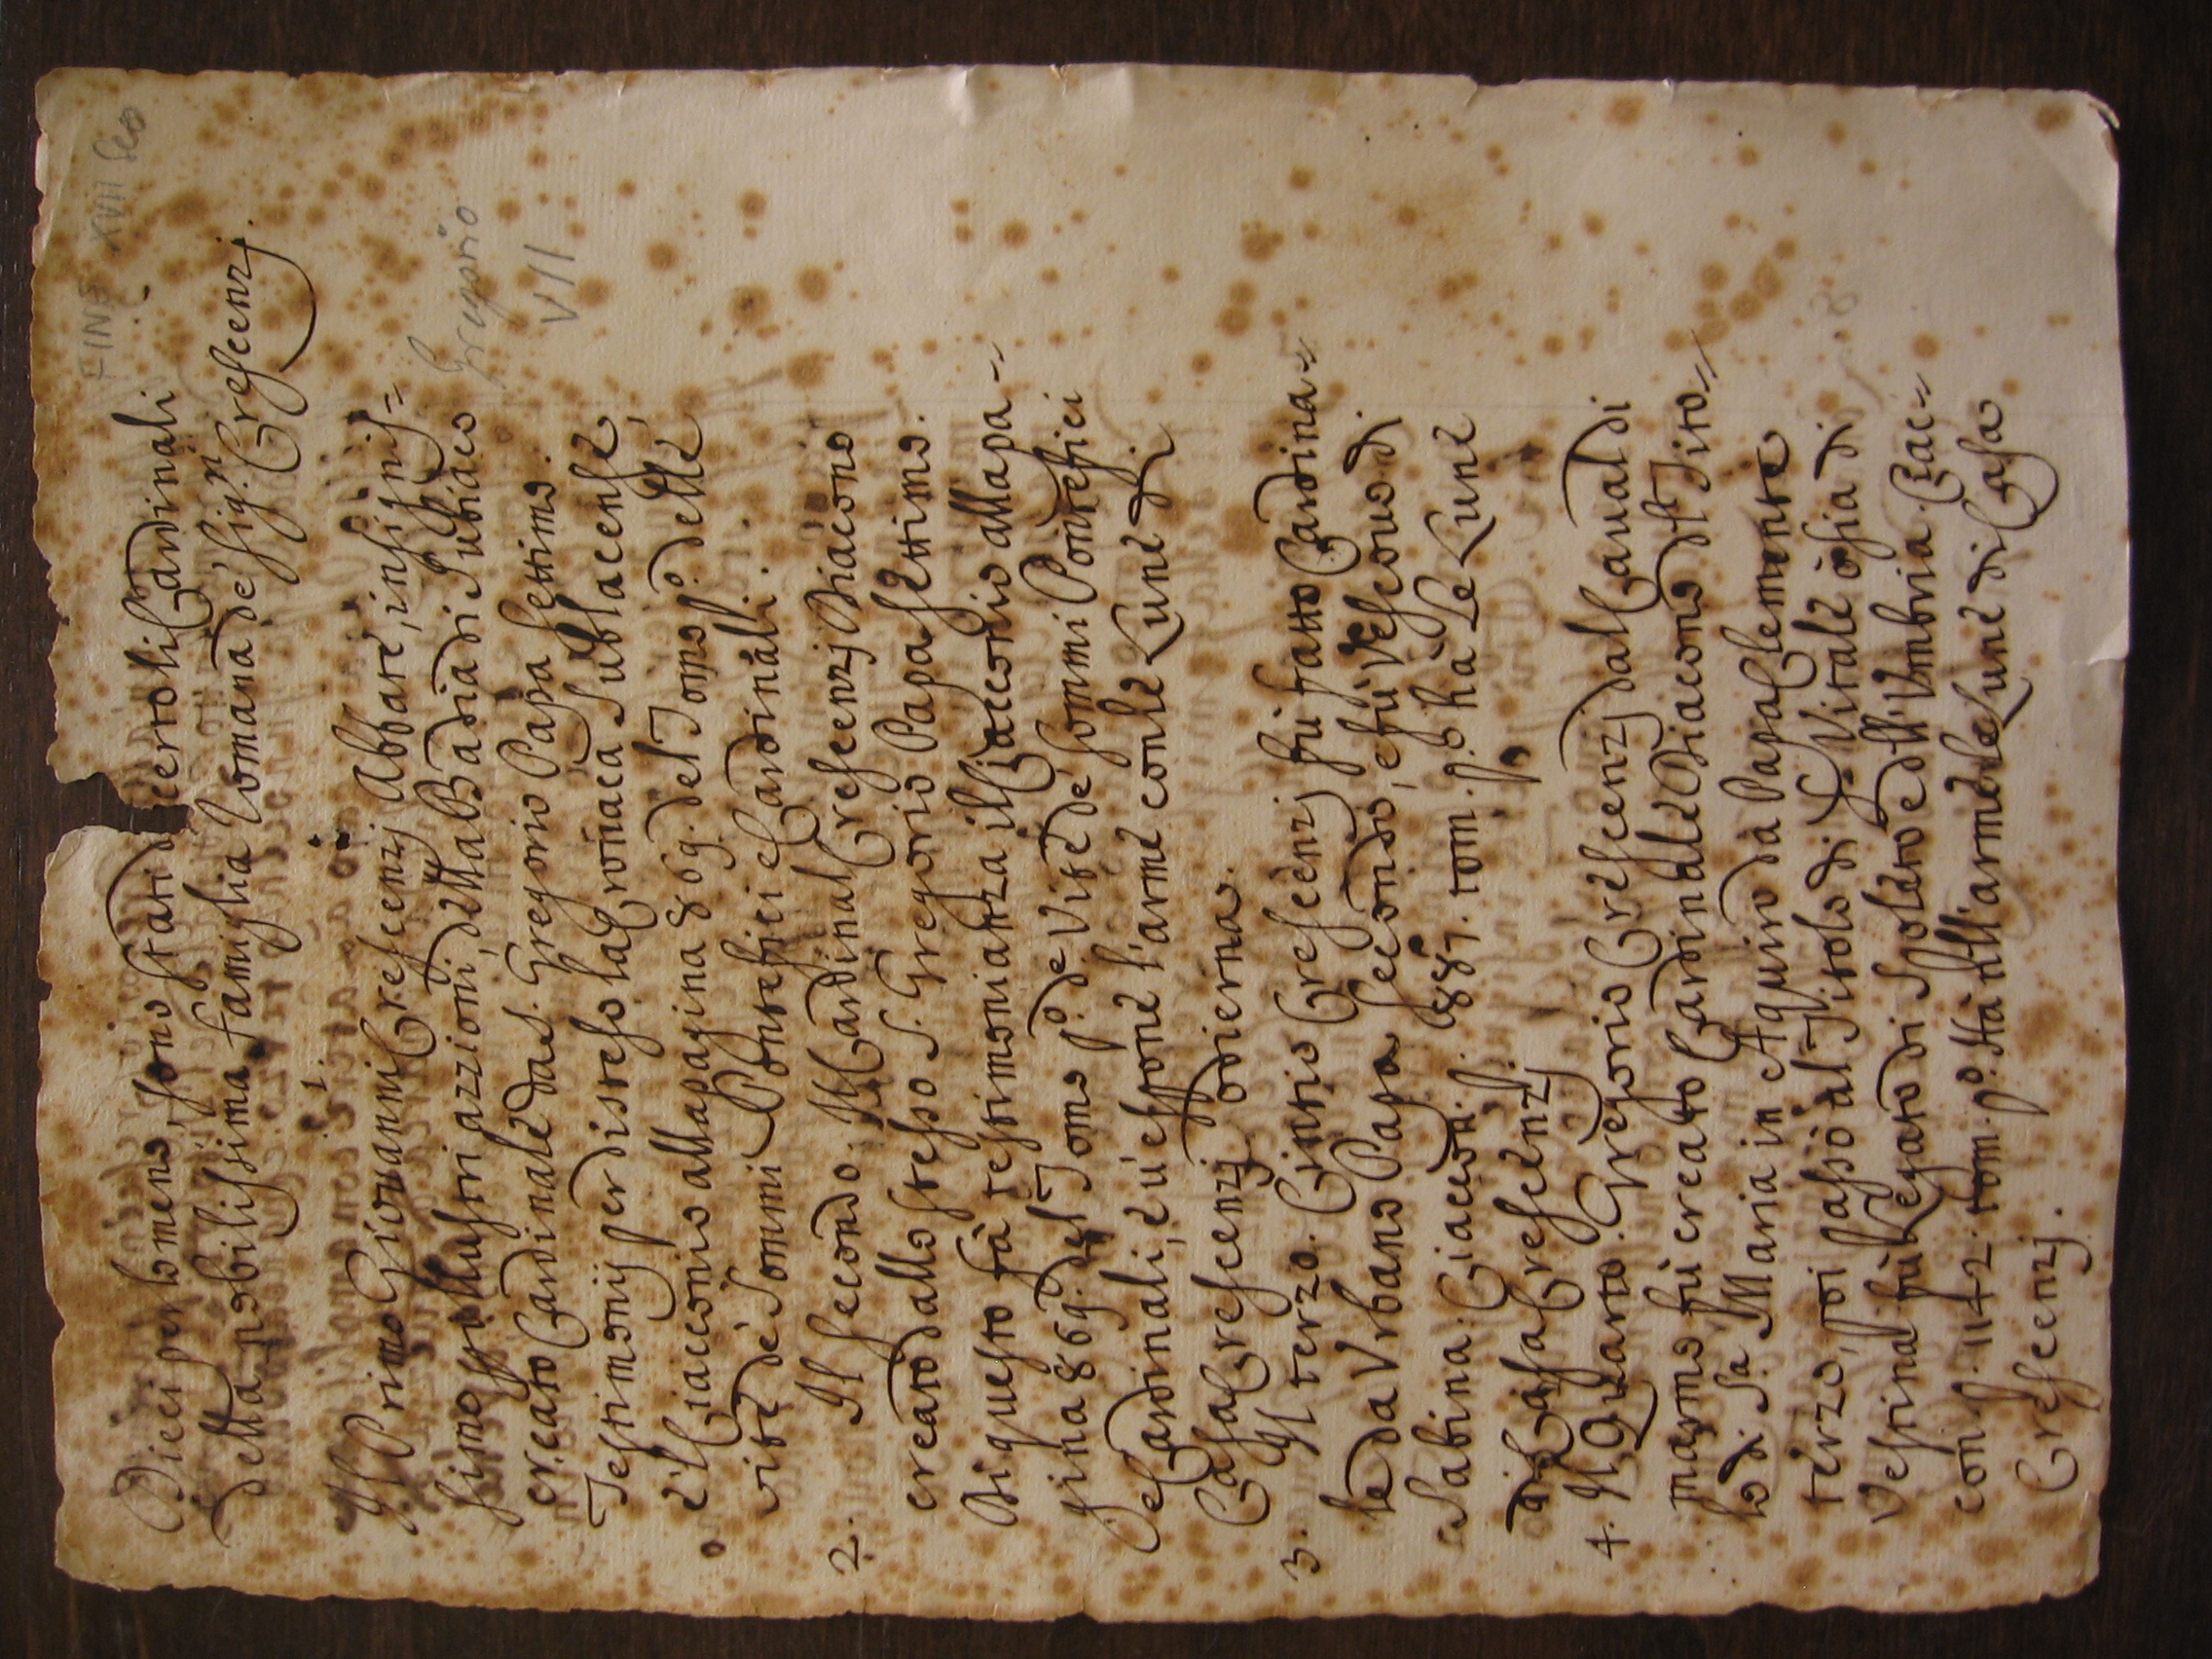 FINE XVII Sec
Dieci per lo meno sono stati certo li Cardinali
della nobilissima famiglia Romana de' Sig.ri Crescenzj.
1.
Il Primo Giovanni Crescenzj Abbate, insignis=
simo per illustri azzioni, della Badia di Subiaco
creato Cardinale da S. Gregorio Papa settimo.
Gregorio
VII
Testimonij per disteso la Cronaca Sublacense,
e'l Ciacconio alla pagina 869. del Tomo p.o delle
vite de' Sommi Pontefici e Cardinali.
2. Il secondo. Il Cardinal Crescenzj Diacono
creato dallo stesso S. Gregorio Papa settimo.
Di questo fà testimonianza il Ciacconio alla pa=
gina 869. del Tomo p.o de Vite de' sommi Pontefici
e Cardinali, e ui espone l'arme con le Lune di
Casa Crescenzj odierna.
3. Il terzo. Cintio Crescenzj fù fatto Cardina=
le da Vrbano Papa secondo, e fù Vescouo di
Sabina. Ciaccon. 887. tom. p.o hà Le Lune
di Casa Crescenzj.
4. Il Quarto. Gregorio Crescenzj dal Caual di
marmo fù creato Cardinale Diacono del Tito=
lo di S.a Maria in Aquiro da Papa Clemente
terzo, poi passò al Titolo di S. Vitale ò sia di
Vestina fù Legato di Spoleto e dell'Vmbria. Ciac=
con. 1142. tom. p.o stà nell'arme le Lune di Casa
Crescenzj.